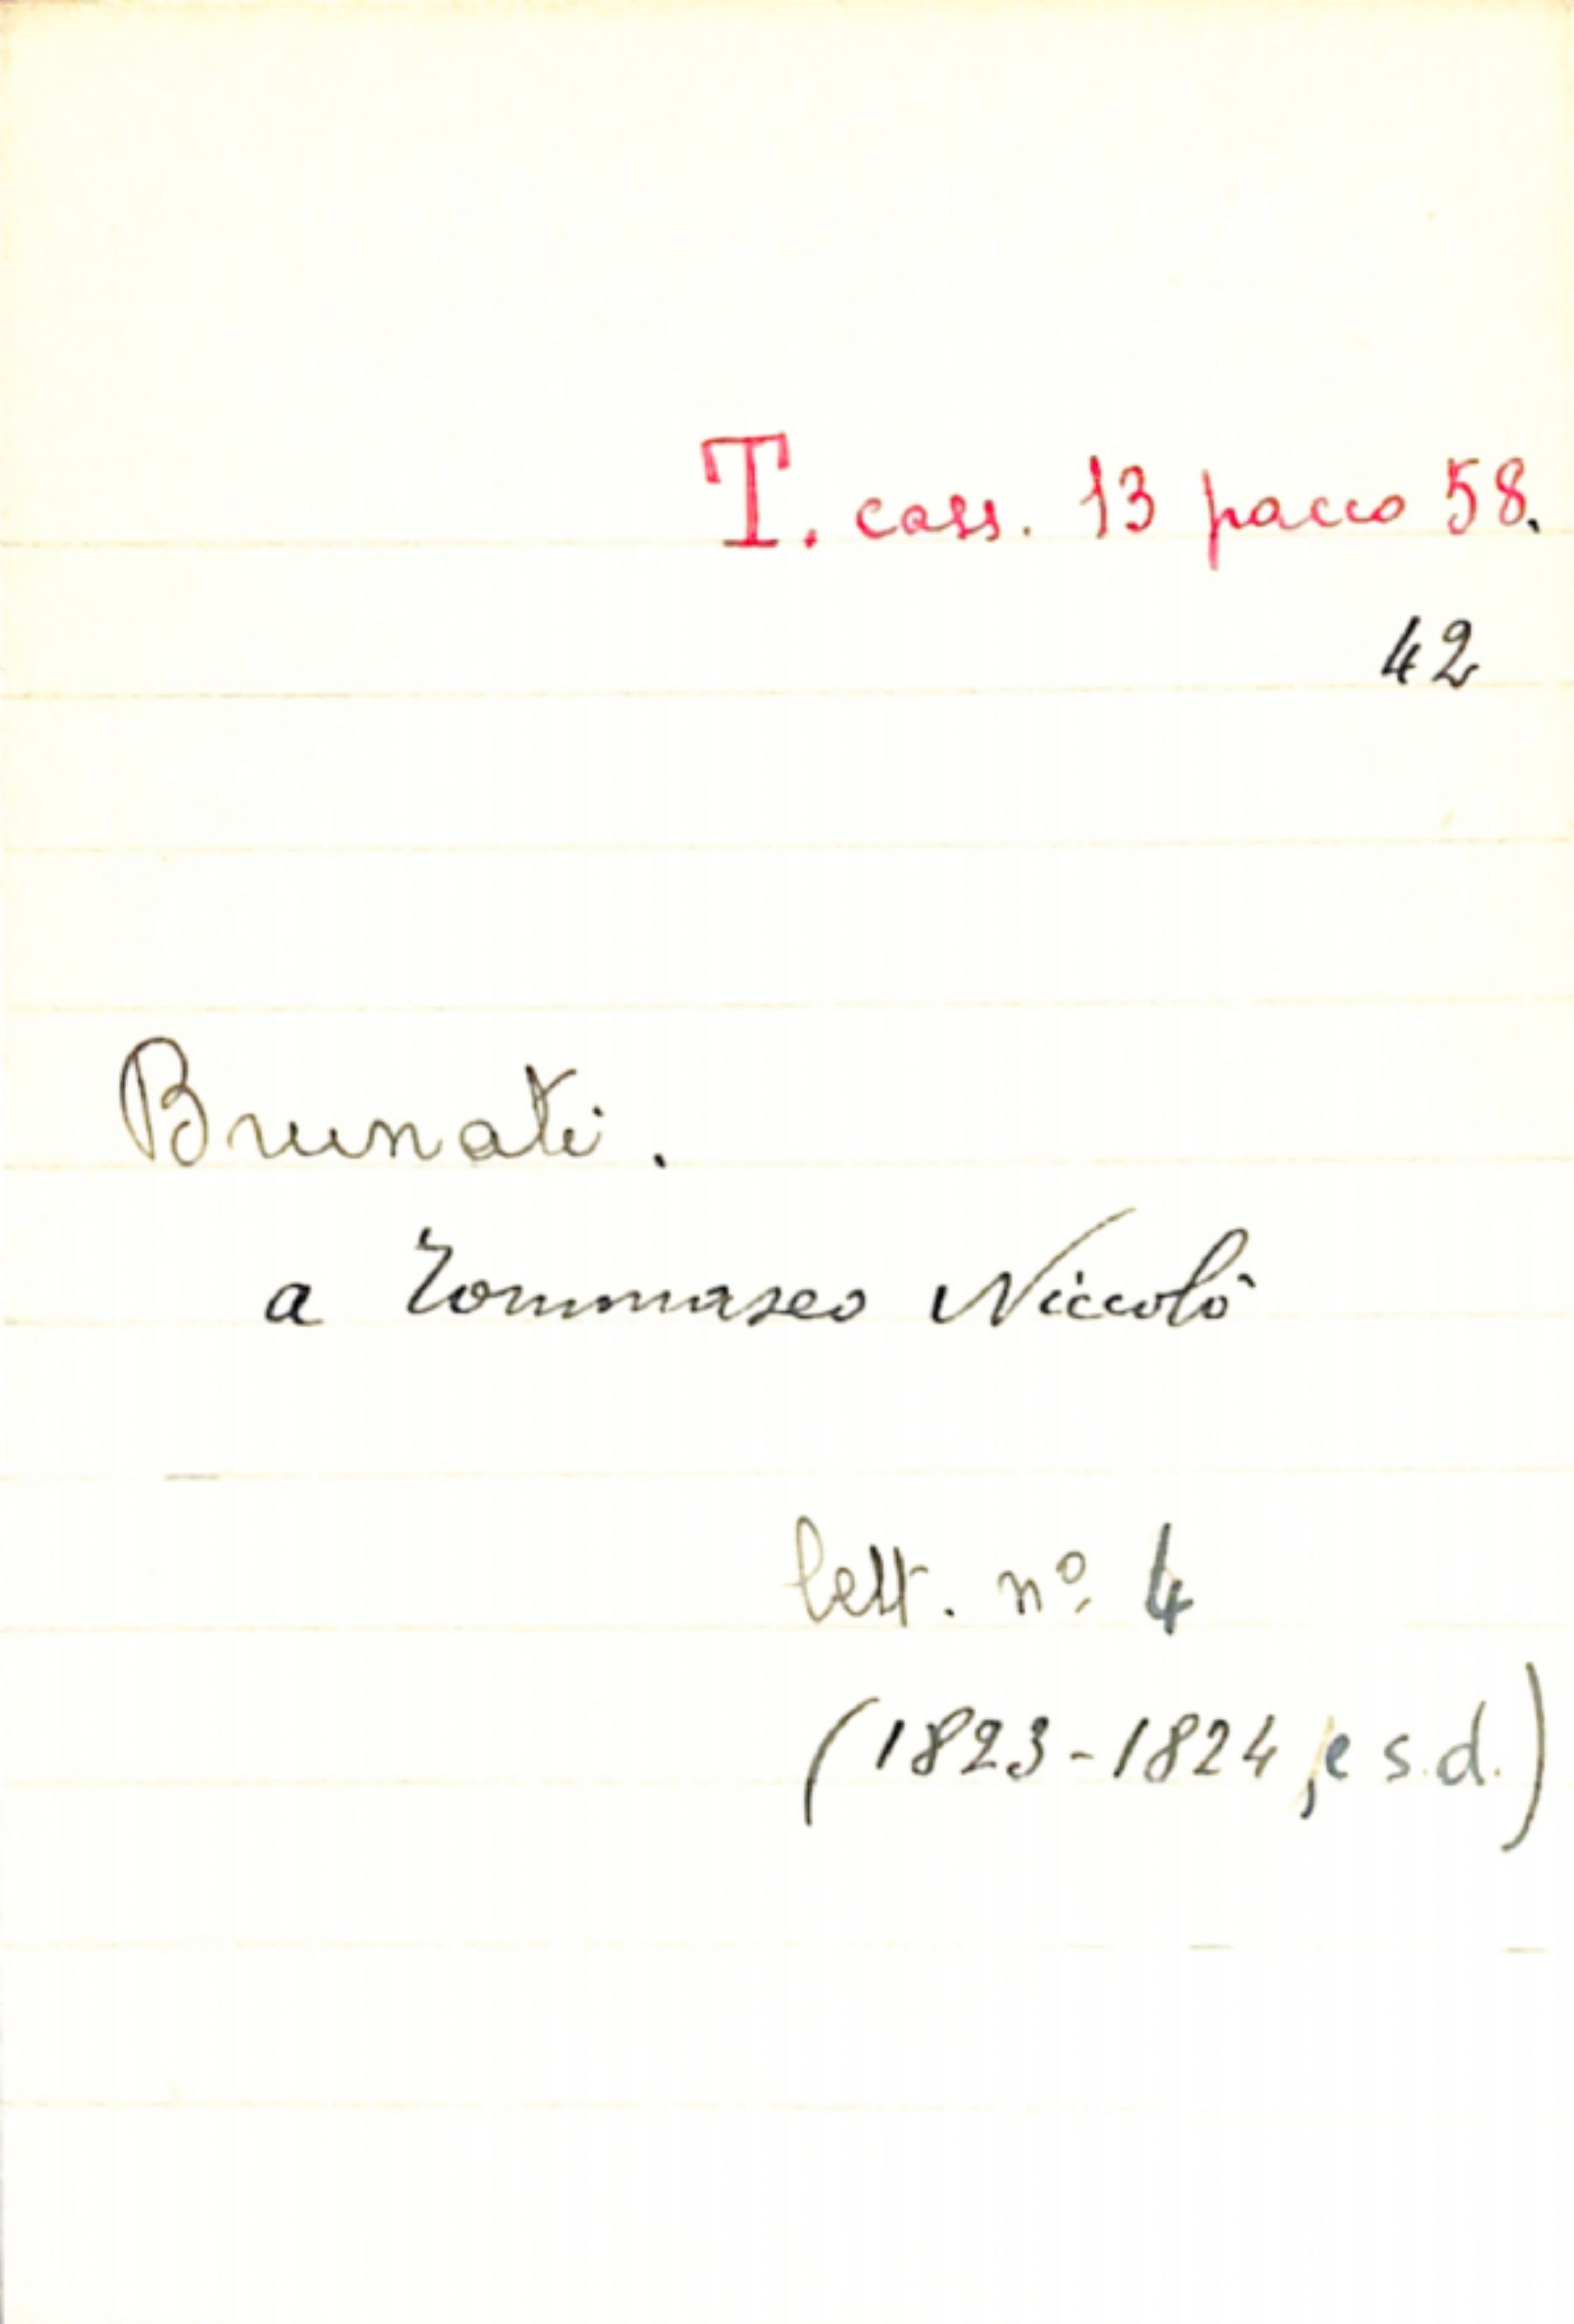 T. cass. 13 pacco 58.
42
Brunati.
a Tommaseo Niccolò
lett. nº 4
(1823-1824, e s.d.)